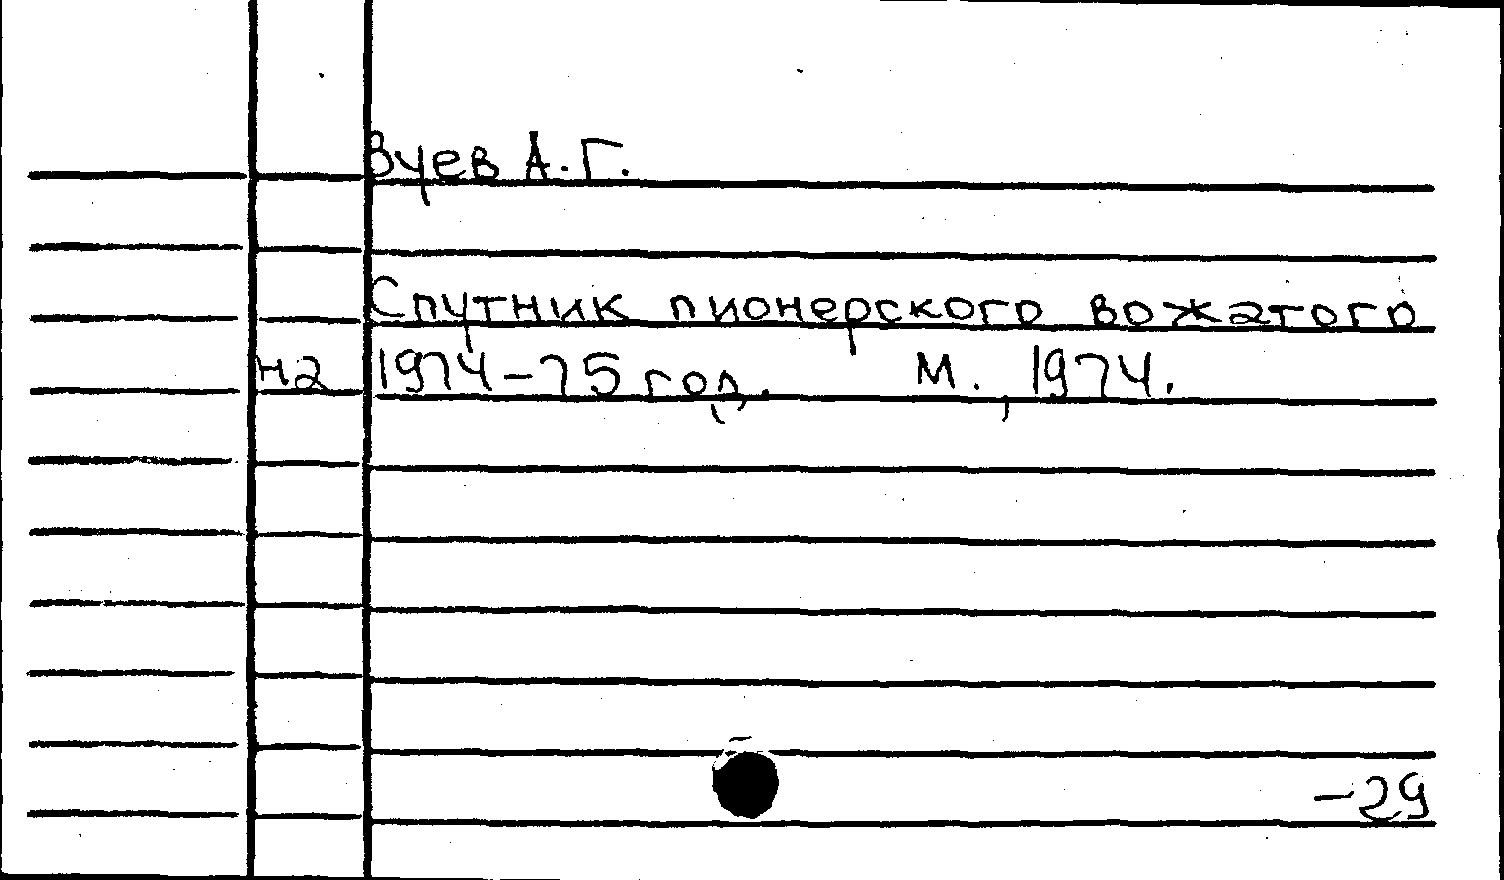 Зуев А.Г.
Спутник пионерского вожатого
на 1974-75 год. М., 1974.
-29